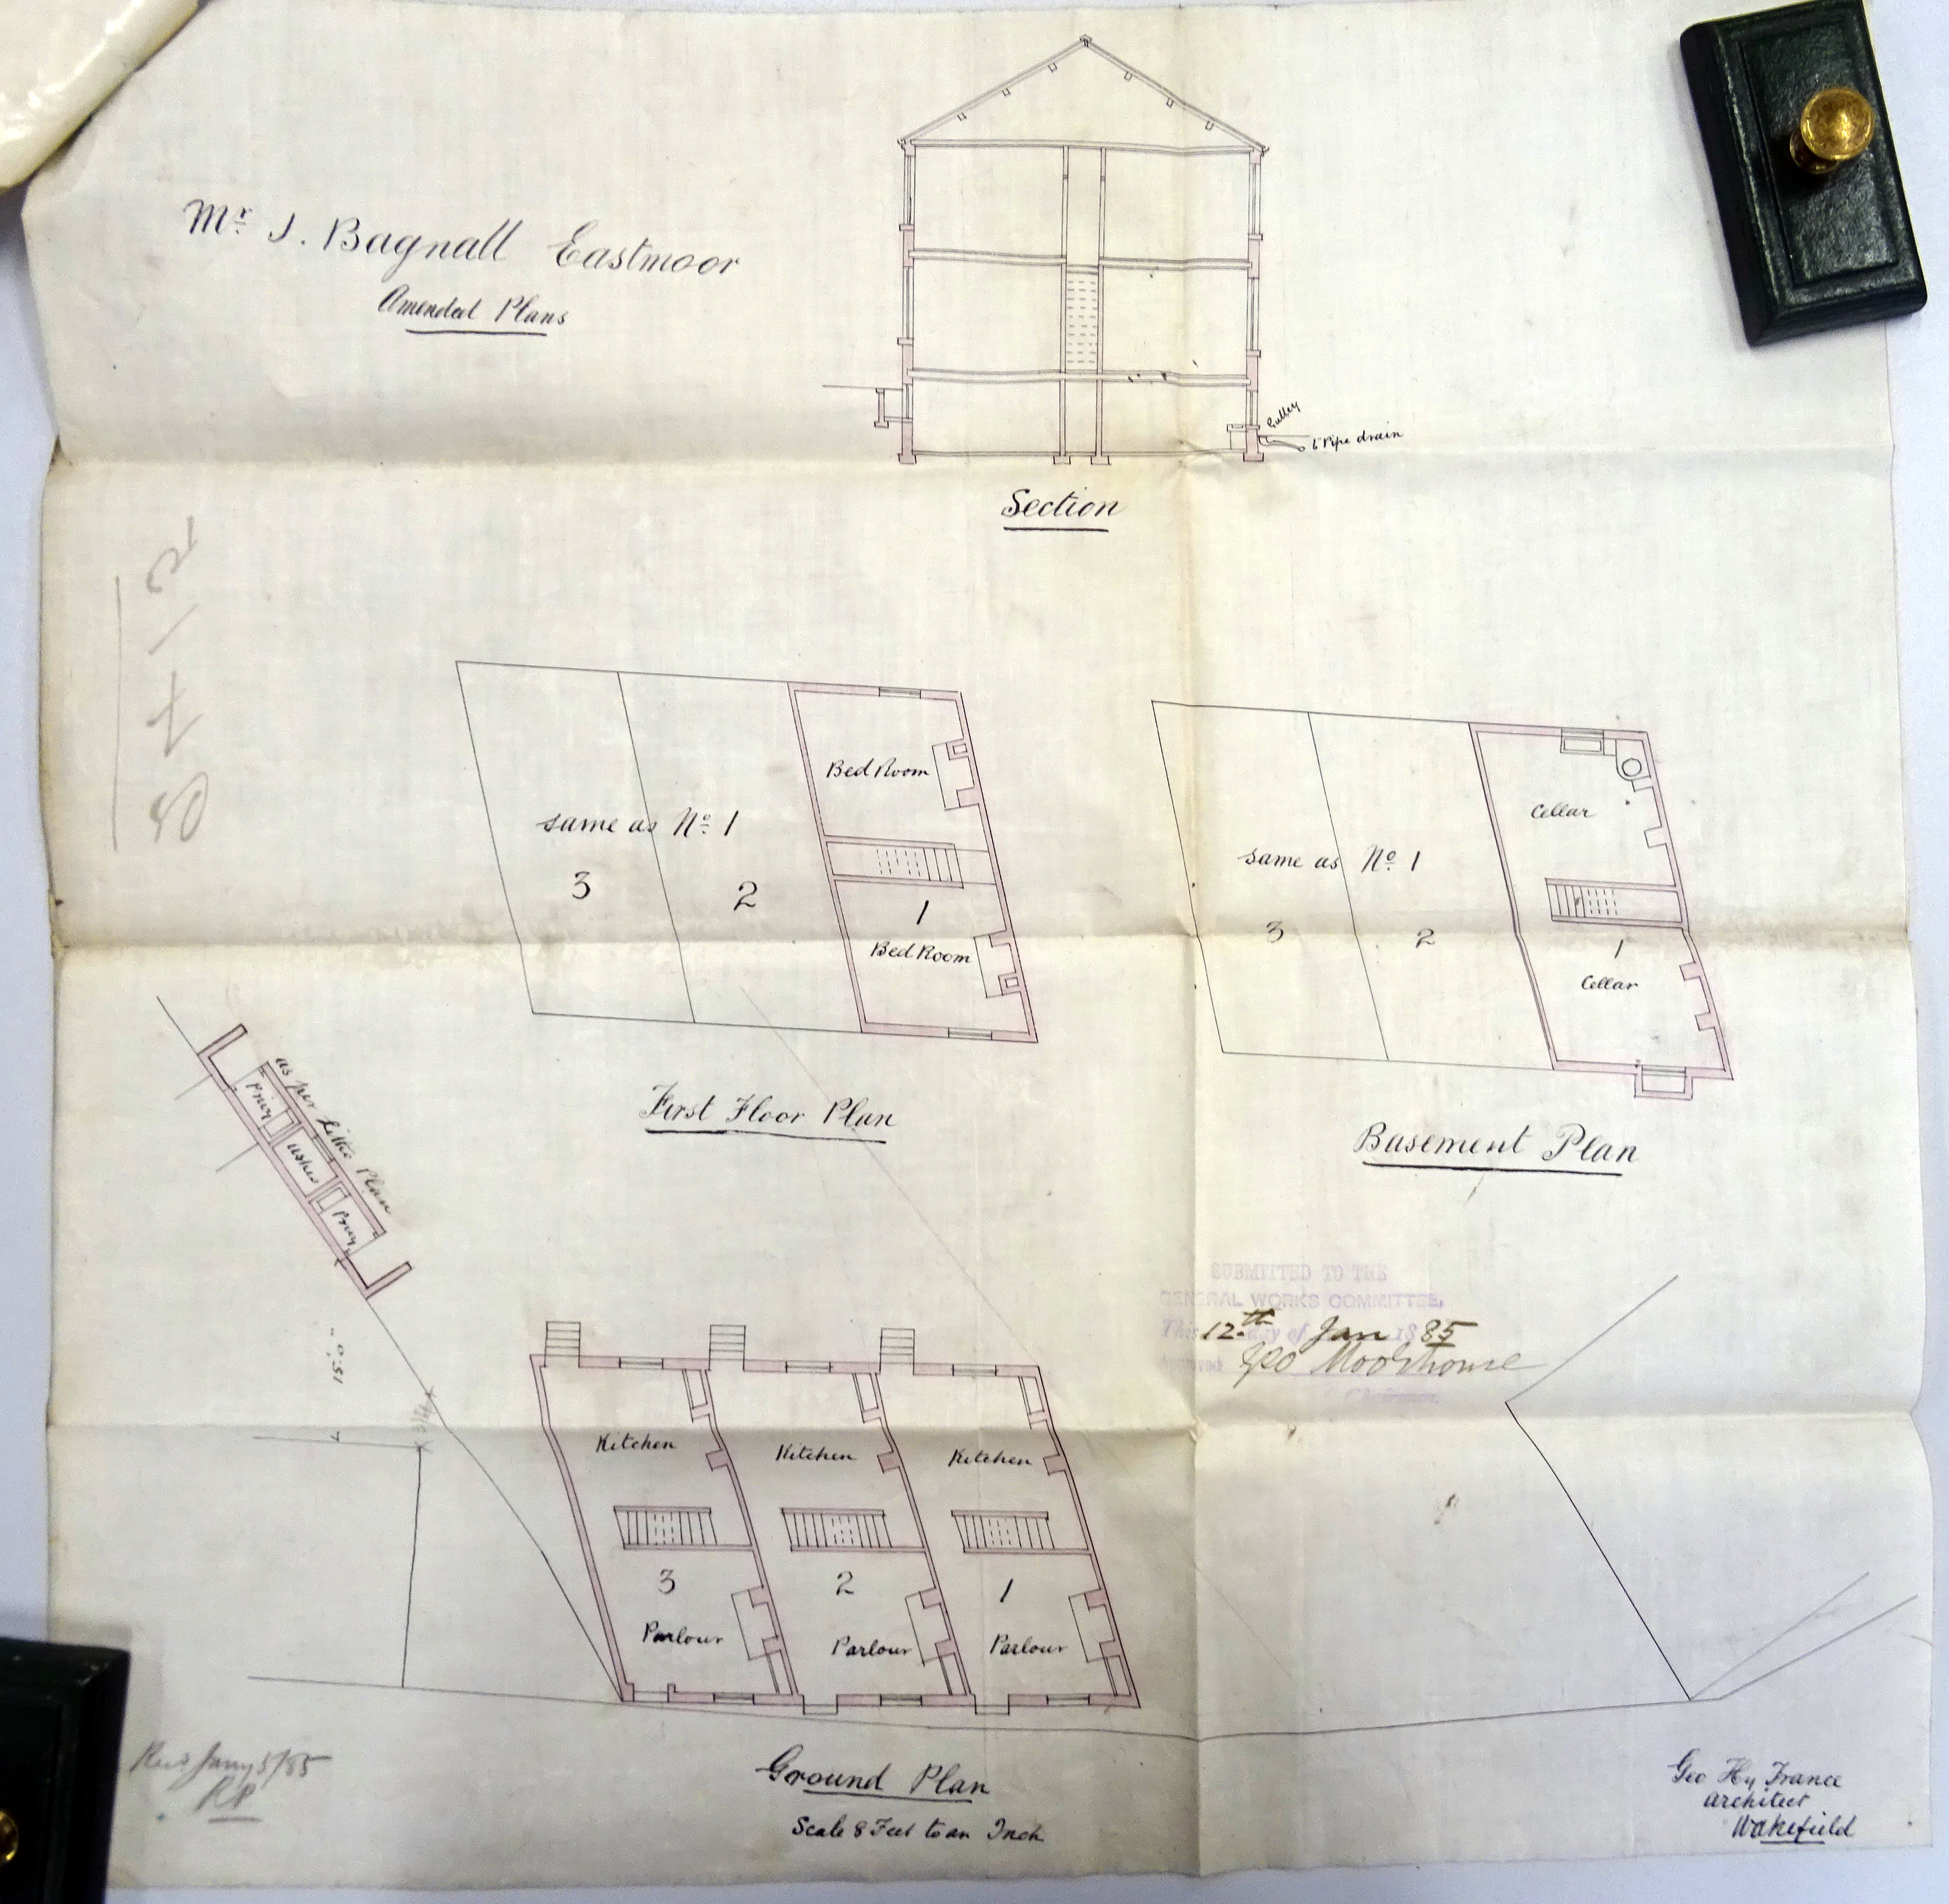 Mr. J. Bagnall Eastmoor
Amended Plans
Gulley
6" Pipe drain
Section
Bed Room
same as No. 1
3
2
1
Bed Room
First Floor Plan
Cellar
same as No. 1
3
2
1
Cellar
Basement Plan
as per little Plan
Privy
Ashes
Privy
15'.0"
SUBMITTED TO THE
GENERAL WORKS COMMITTEE,
This 12th day of Jan 1885
Approved Geo Moorhouse
Chairman.
Kitchen
Kitchen
Kitchen
3
2
1
Parlour
Parlour
Parlour
Ground Plan
Scale 8 Feet to an Inch
Jany 5/85
RP
Geo Hy France
architect
Wakefield